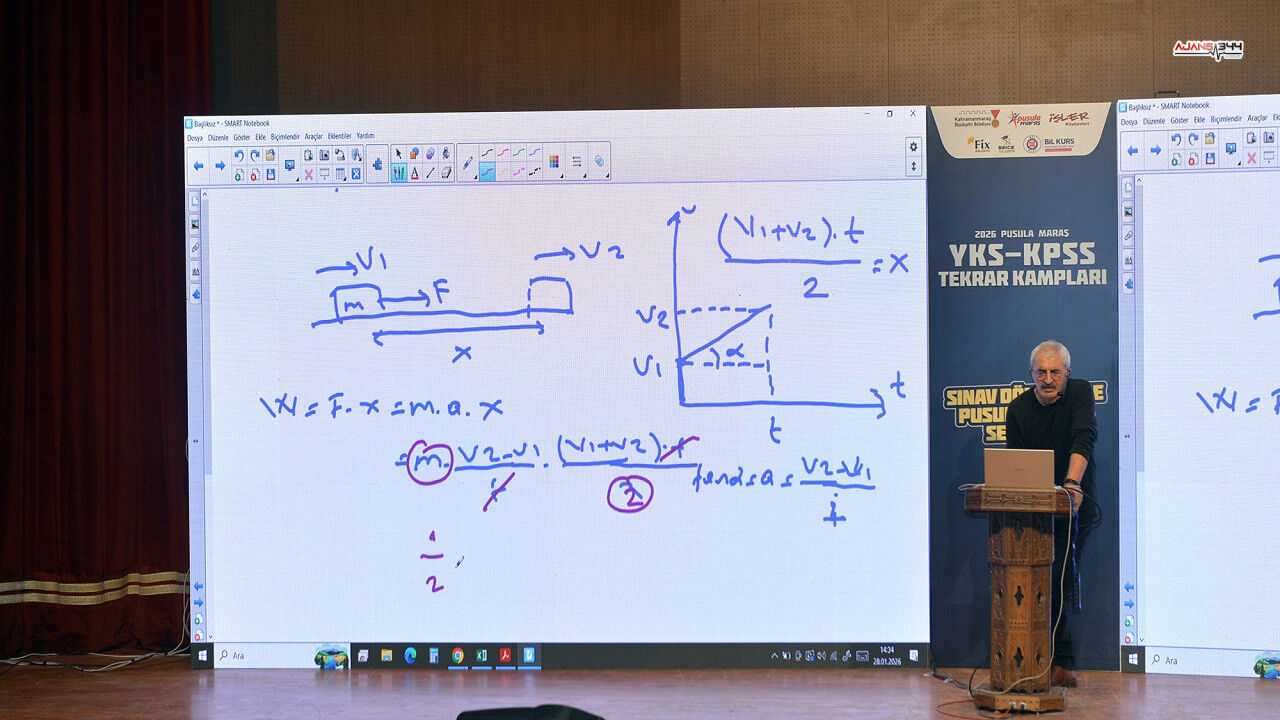 AJANS344
Başlıksız * - SMART Notebook
Dosya Düzenle Göster Ekle Biçimlendir Araçlar Eklentiler Yardım
V1
V2
m
F
x
W = F. x = m. a. x
= m. V2-V1 / t . (V1+V2). t / 2
tan α = a = V2-V1 / t
1
2
v
(V1+V2). t
2
= x
V2
V1
α
t
t
Ara
14:34
28.01.2026
Kahramanmaraş
Büyükşehir Belediyesi
pusula
maraş
İŞLER
Kitabevleri
Fix
BRICK
BİL KURS
2026 PUSULA MARAŞ
YKS-KPSS
TEKRAR KAMPLARI
SINAV DÖ
PUSU
SE
Başlıksız * - SMART Notebook
Dosya Düzenle Göster Ekle Biçimlendir Araçlar
W = F
Ara